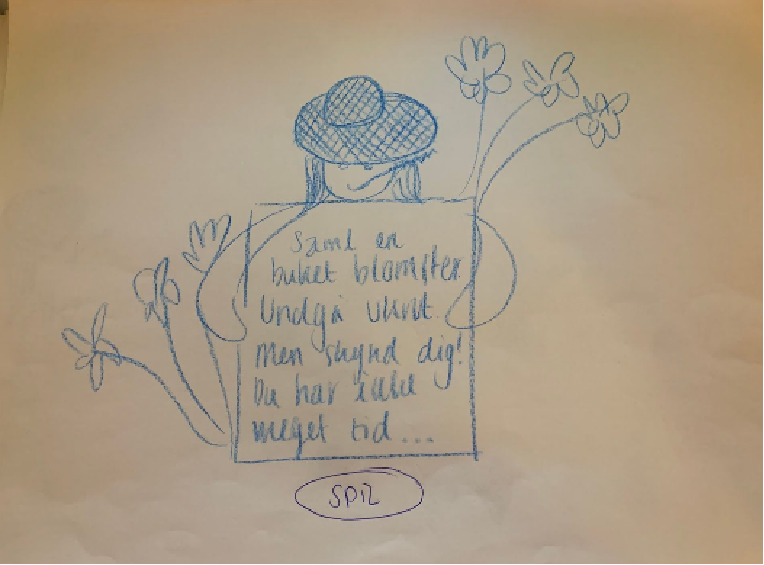 Saml en
buket blomster
Undgå ukrudt
men skynd dig!
Du har ikke
meget tid...
SPIL